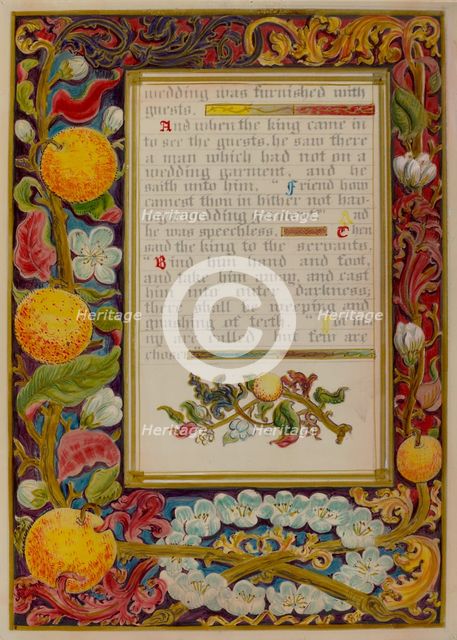 wedding was furnished with
guests.
And when the king came in
to see the guests, he saw there
a man which had not on a
wedding garment, and he
saith unto him, "Friend how
camest thou in hither not hav-
wedding And
he was speechless. Then
said the king to the servants
"Bind him hand and foot,
and take him away, and cast
him into outer darkness;
shall be weeping and
gnashing of teeth
ny are called but few are
chosen
Heritage Heritage
Heritage Heritage
Heritage Heritage Heritage